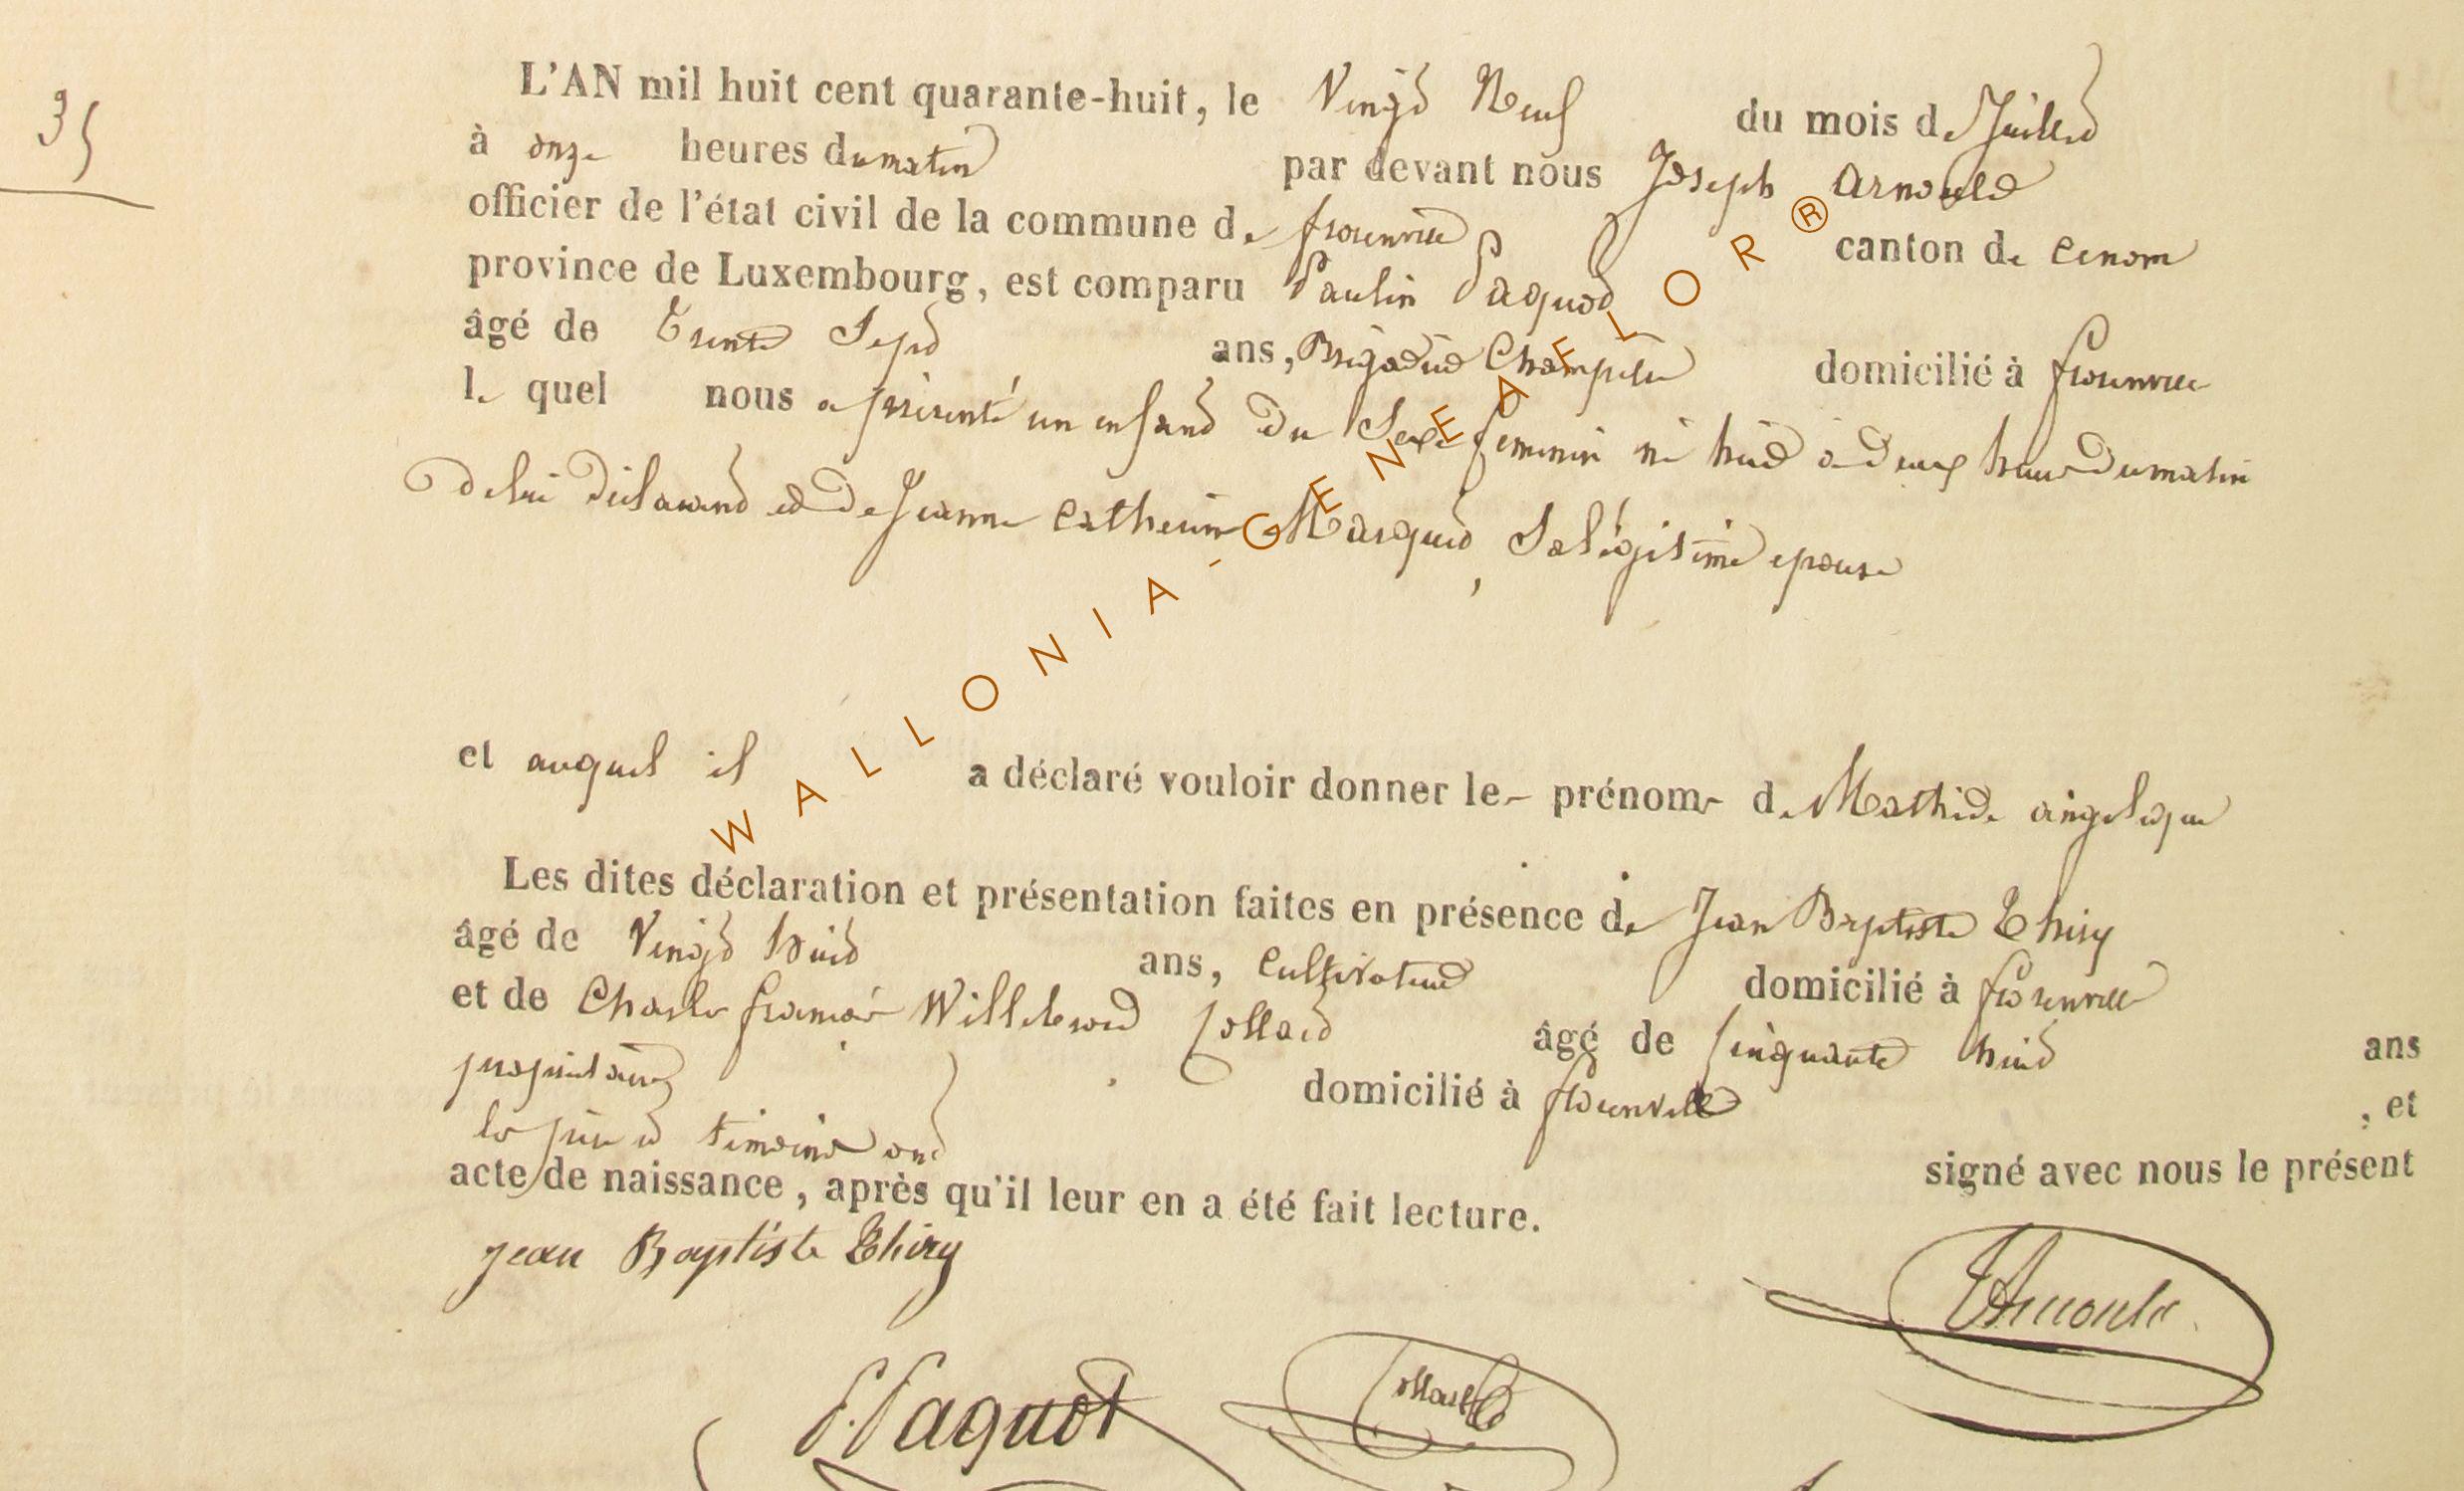 35
L'AN mil huit cent quarante-huit, le Vingt Neuf du mois de Juillet
à onze heures du matin par devant nous Joseph Arnould
officier de l'état civil de la commune de florenville canton de
province de Luxembourg, est comparu Paulin Paquot
âgé de Trente Sept ans, Brigadier Champetre domicilié à florenville
le quel nous a présenté un enfant du Sexe feminin né hier à deux heures du matin
de lui déclarant et de Jeanne Catherine Marquet, Sa légitime epouse
et auquel il a déclaré vouloir donner les prénoms de Mathilde angelique
Les dites déclaration et présentation faites en présence de Jean Baptiste Thiry
âgé de Vingt huit ans, Cultivateur domicilié à florenville
et de Charles francois Collard âgé de Cinquante huit ans
propriétaire domicilié à florenville , et
les père et témoins ont signé avec nous le présent
acte de naissance, après qu'il leur en a été fait lecture.
jean Baptiste Thiry
JArnould
P. Paquot
Collard
WALLONIA-GENEAFLOR®